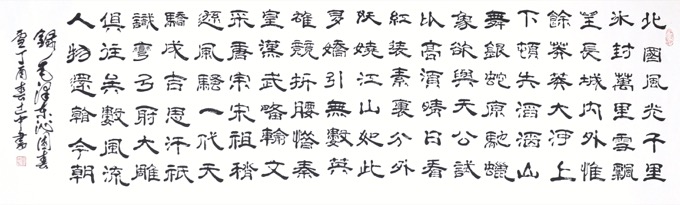 北國風光千里
冰封萬里雪飄
望長城內外惟
餘莽莽大河上
下頓失滔滔山
舞銀蛇原馳蠟
象欲與天公試
比高須晴日看
紅裝素裹分外
妖嬈江山如此
多嬌引無數英
雄競折腰惜秦
皇漢武略輸文
采唐宗宋祖稍
遜風騷一代天
驕成吉思汗祇
識彎弓射大雕
俱往矣數風流
人物還看今朝
錄毛澤東沁園春
雪丁酉春